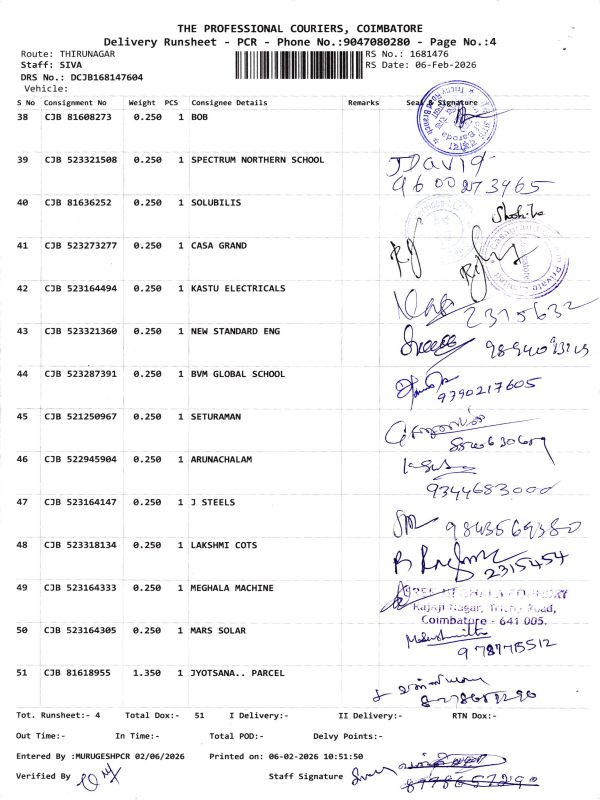 THE PROFESSIONAL COURIERS, COIMBATORE
Delivery Runsheet - PCR - Phone No.:9047080280 - Page No.:4
Route: THIRUNAGAR RS No.: 1681476
Staff: SIVA RS Date: 06-Feb-2026
DRS No.: DCJB168147604
Vehicle:
S No Consignment No Weight PCS Consignee Details Remarks Seal & Signature
38 CJB 81608273 0.250 1 BOB
39 CJB 523321508 0.250 1 SPECTRUM NORTHERN SCHOOL JDavid
9600273965
40 CJB 81636252 0.250 1 SOLUBILIS
41 CJB 523273277 0.250 1 CASA GRAND
42 CJB 523164494 0.250 1 KASTU ELECTRICALS 2315632
43 CJB 523321360 0.250 1 NEW STANDARD ENG
44 CJB 523287391 0.250 1 BVM GLOBAL SCHOOL
9790217605
45 CJB 521250967 0.250 1 SETURAMAN
46 CJB 522945904 0.250 1 ARUNACHALAM
9344683000
47 CJB 523164147 0.250 1 J STEELS 9843569380
48 CJB 523318134 0.250 1 LAKSHMI COTS
2315454
49 CJB 523164333 0.250 1 MEGHALA MACHINE MEGHALA FOUNDRY
Rajaji Nagar, Trichy Road,
Coimbatore - 641 005.
50 CJB 523164305 0.250 1 MARS SOLAR
51 CJB 81618955 1.350 1 JYOTSANA.. PARCEL
Tot. Runsheet:- 4 Total Dox:- 51 I Delivery:- II Delivery:- RTN Dox:-
Out Time:- In Time:- Total POD:- Delvy Points:-
Entered By :MURUGESHPCR 02/06/2026 Printed on: 06-02-2026 10:51:50
Verified By Staff Signature